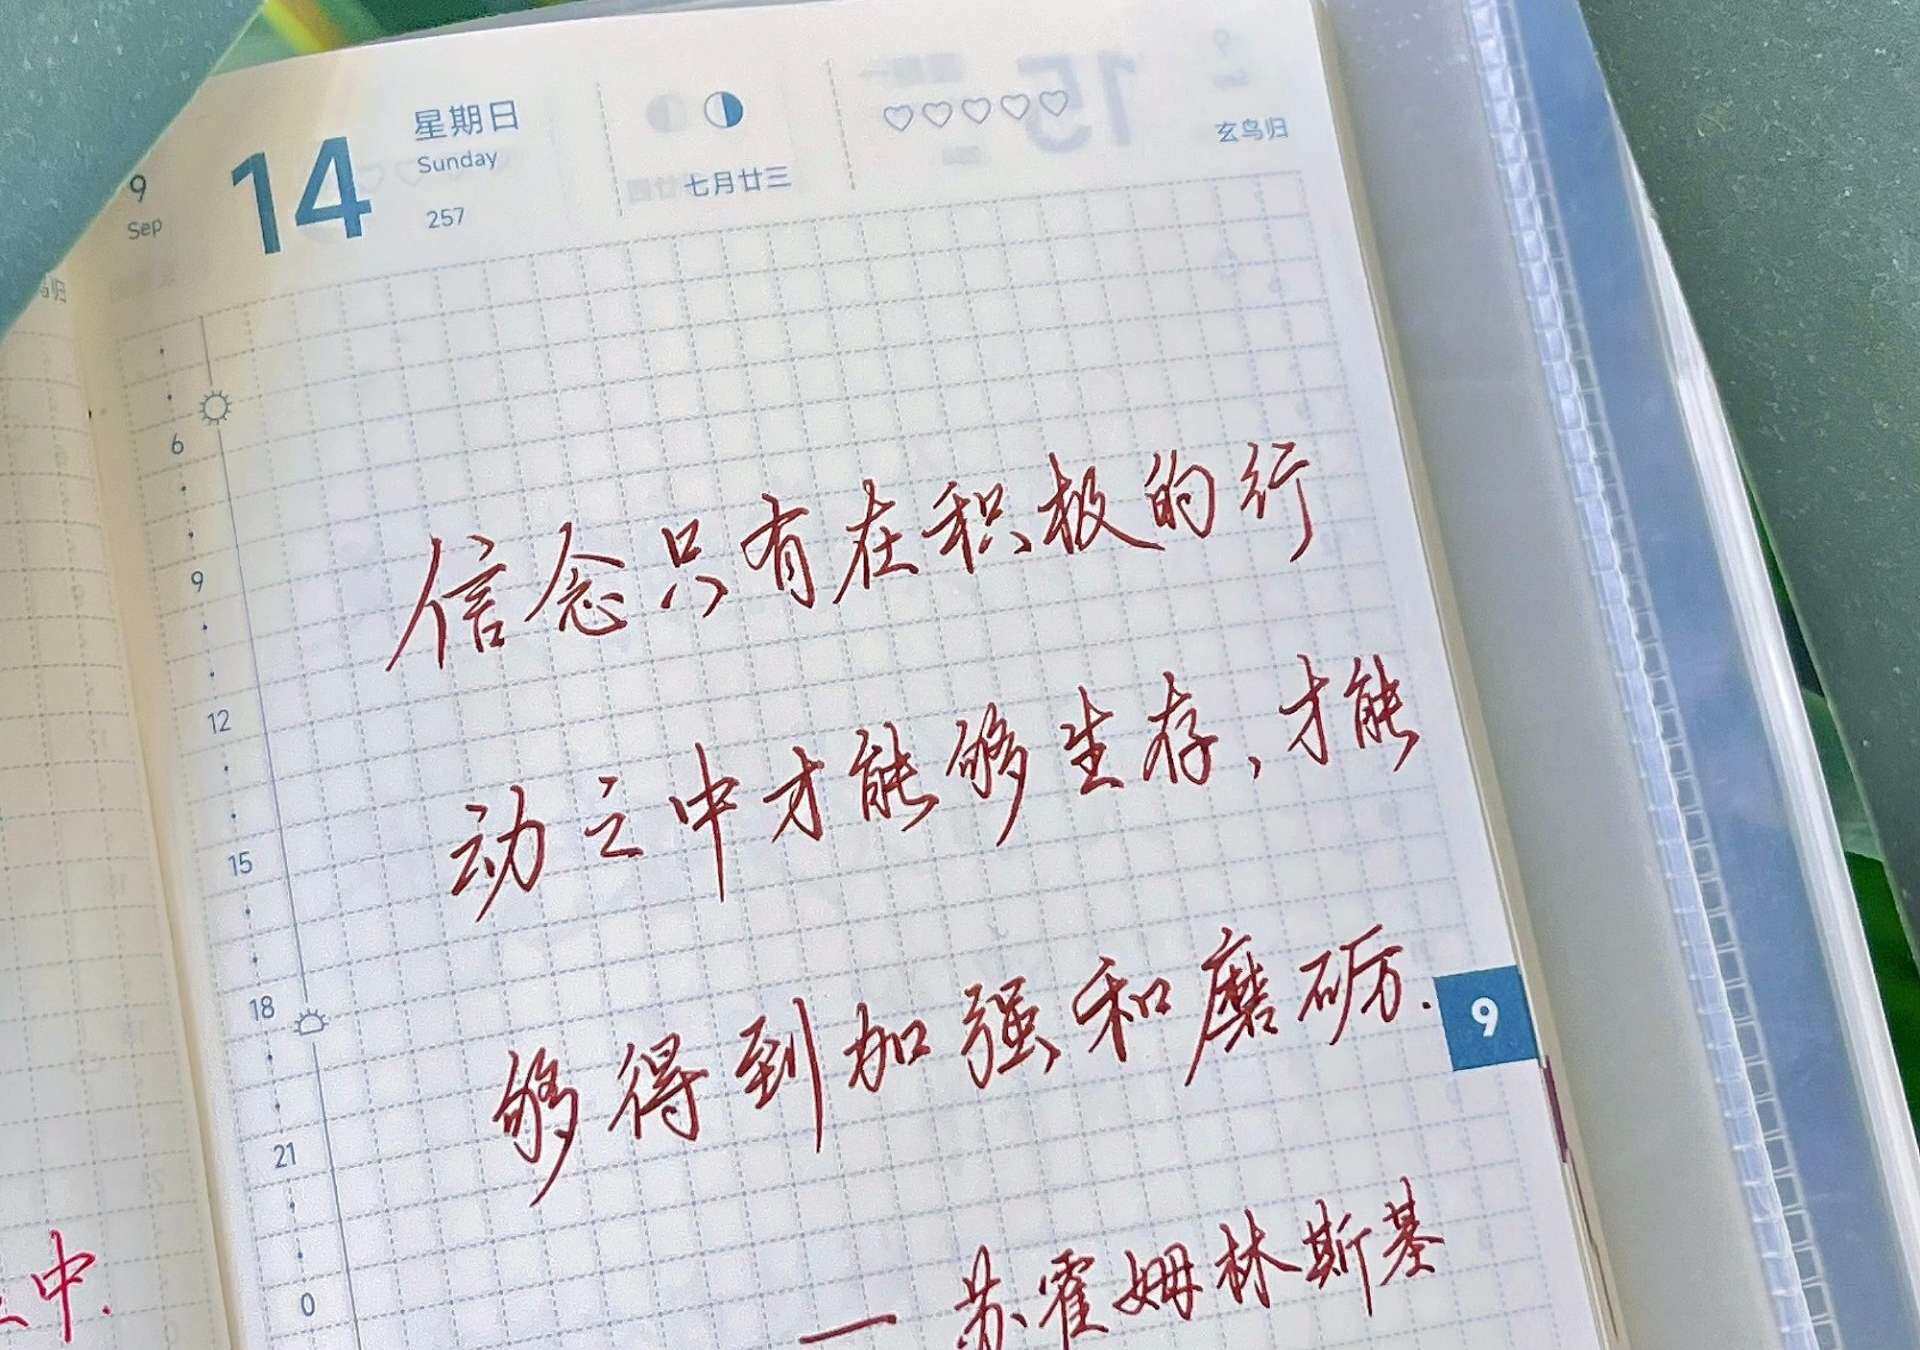 9
Sep
14
星期日
Sunday
257
七月廿三
玄鸟归
6
9
12
15
18
21
0
信念只有在积极的行
动之中才能够生存、才能
够得到加强和磨砺.
— 苏霍姆林斯基
9
中.